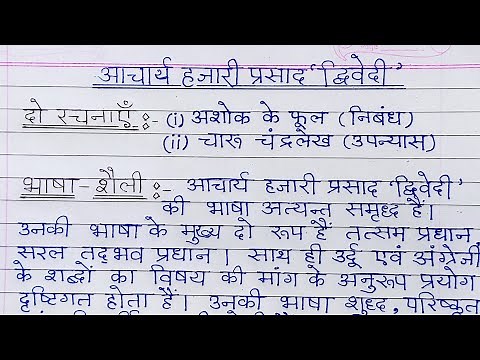 आचार्य हजारी प्रसाद 'द्विवेदी'
दो रचनाएँ :- (i) अशोक के फूल (निबंध)
(ii) चारू चंद्रलेख (उपन्यास)
भाषा-शैली :- आचार्य हजारी प्रसाद 'द्विवेदी'
की भाषा अत्यन्त समृध्द है।
उनकी भाषा के मुख्य दो रूप हैं तत्सम प्रधान,
सरल तद्भव प्रधान। साथ ही उर्दू एवं अंग्रेजी
के शब्दों का विषय की मांग के अनुरूप प्रयोग
दृष्टिगत होता हैं। उनकी भाषा शुध्द, परिष्कृत